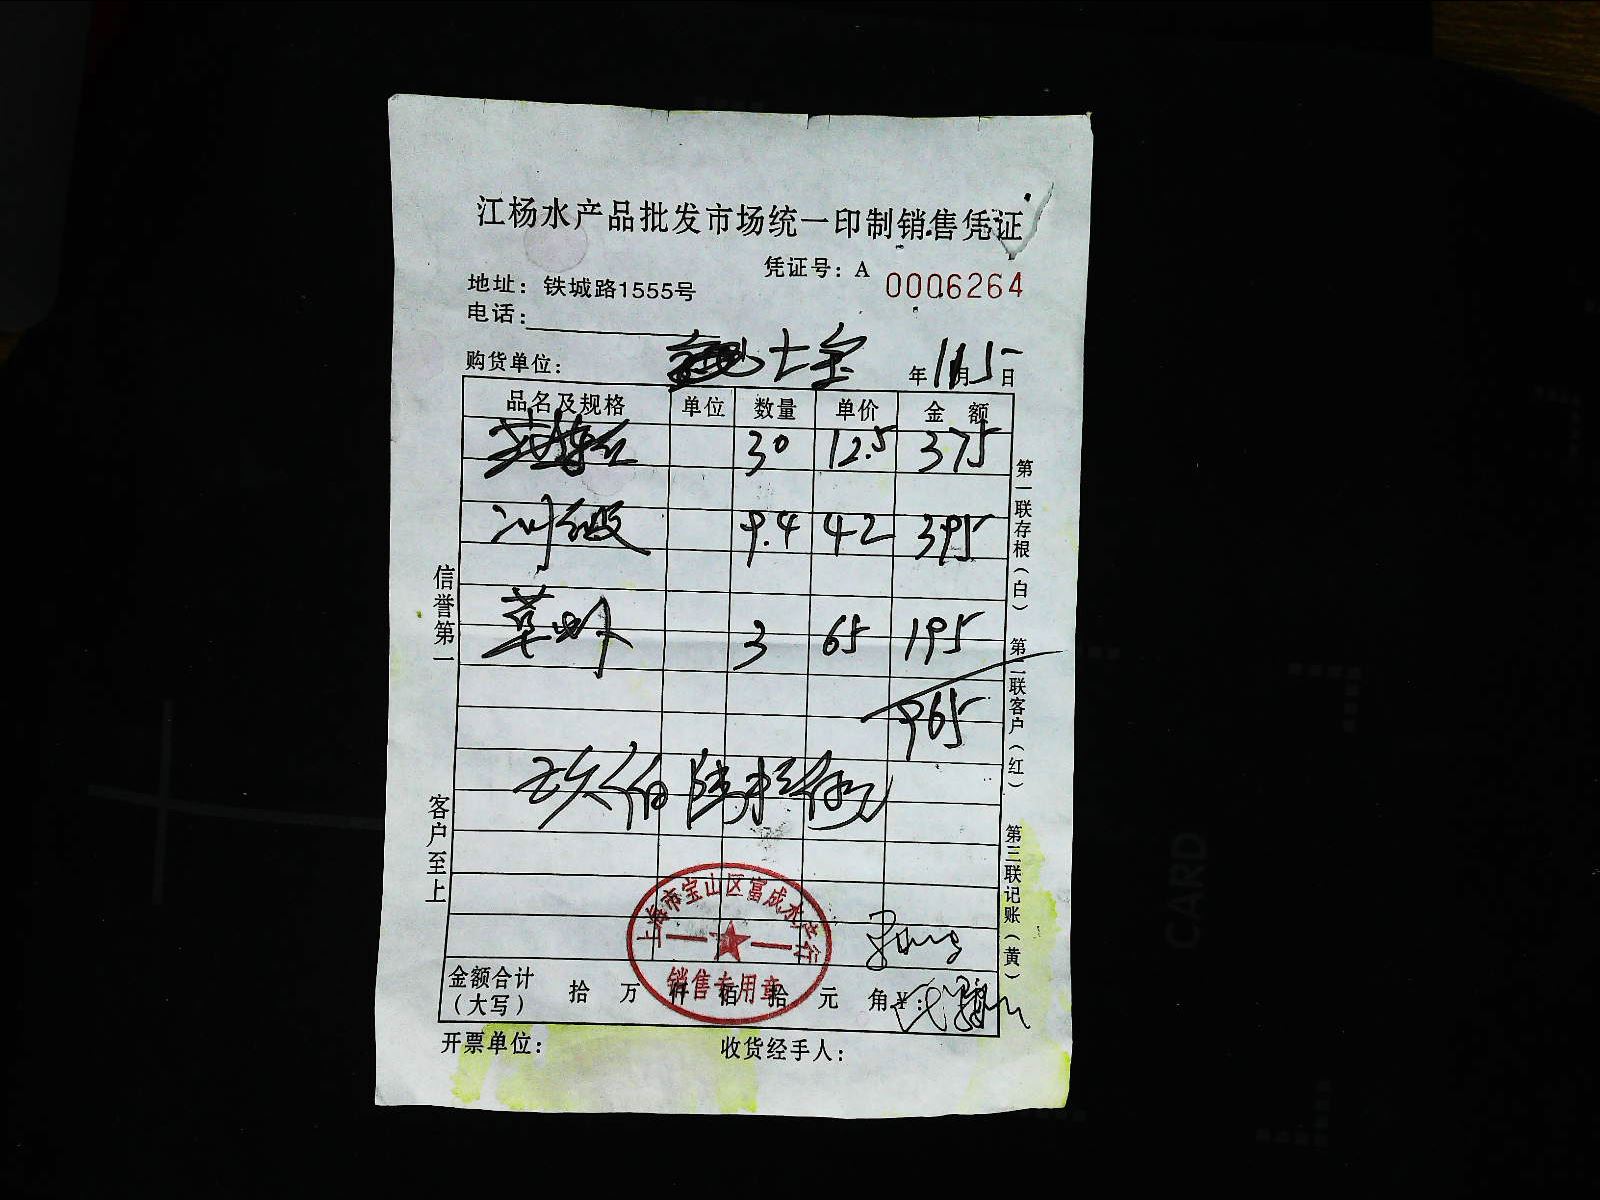 江杨水产品批发市场统一印制销售凭证
凭证号：A 0006264
地址：铁城路1555号
电话：
购货单位： 七宝 年11月5日
品名及规格 单位 数量 单价 金额
30 12.5 375
9.4 42 395
草虾 3 65 195
965
玖佰陆拾伍元
金额合计（大写） 拾 万 仟 佰 拾 元 角 ¥：
开票单位： 收货经手人：
信誉第一
客户至上
第一联存根（白）
第二联客户（红）
第三联记账（黄）
上海市宝山区富成水产行
销售专用章